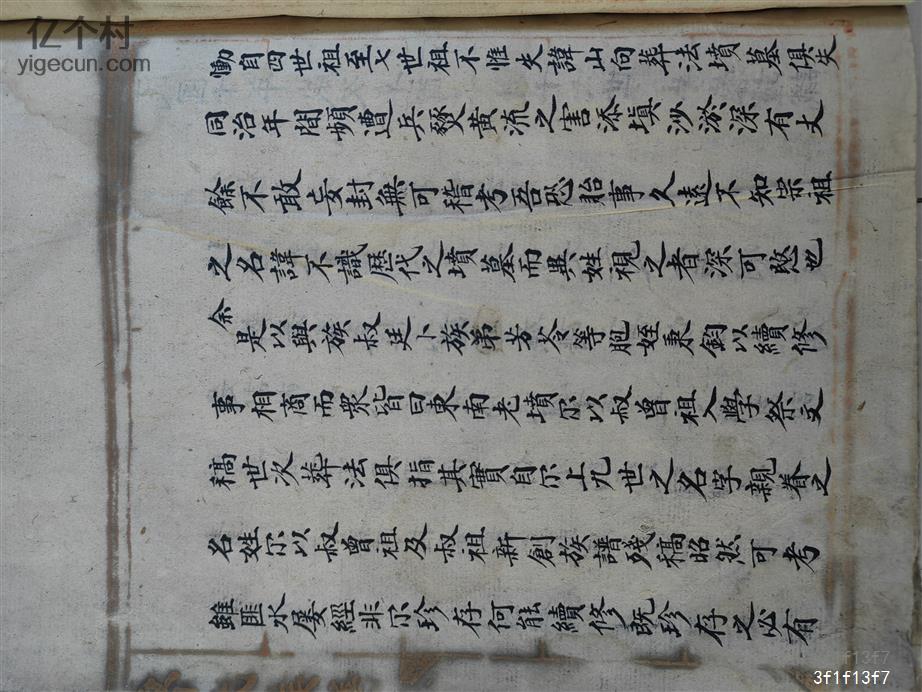 亿个村
yigecun.com
慟自四世祖至七世祖不惟失諱山向葬法墳墓俱失
同治年間頻遭兵燹黃流之害添填沙淤深有丈
餘不敢妄封無可稽考吾恐貽事久遠不知崇祖
之名諱不識歷代之墳墓而異姓視之者深可愍也
余是以與族叔廷卜族弟芳苓等胞姪秉鈞以續修
事相商而衆皆曰東南老墳尔以叔曾祖入學祭文
稿世次葬法俱指其實自尔上九世之名字親眷之
名姓尔以叔曾祖及叔祖新創族譜殘稿昭然可考
雖匪水屡經非尔珍存何能續修既珍存之必有
3f1f13f7